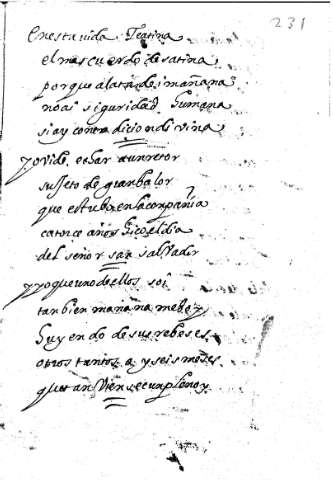 231
En esta vida Teatina
el mas cuerdo desatina
porque a la tarde i mañana
no ai siguridad humana
si ay contradicion divina
yo vide echar a un retor
sujeto de gran balor
que estubo en la conpañia
catorce años hico el dia
del señor san salvador
y yo que uno de ellos soi
tanbien mañana me boy
huyendo de sus rebeses
otros tantos a, y seis meses
que tanbien se cunplen oy